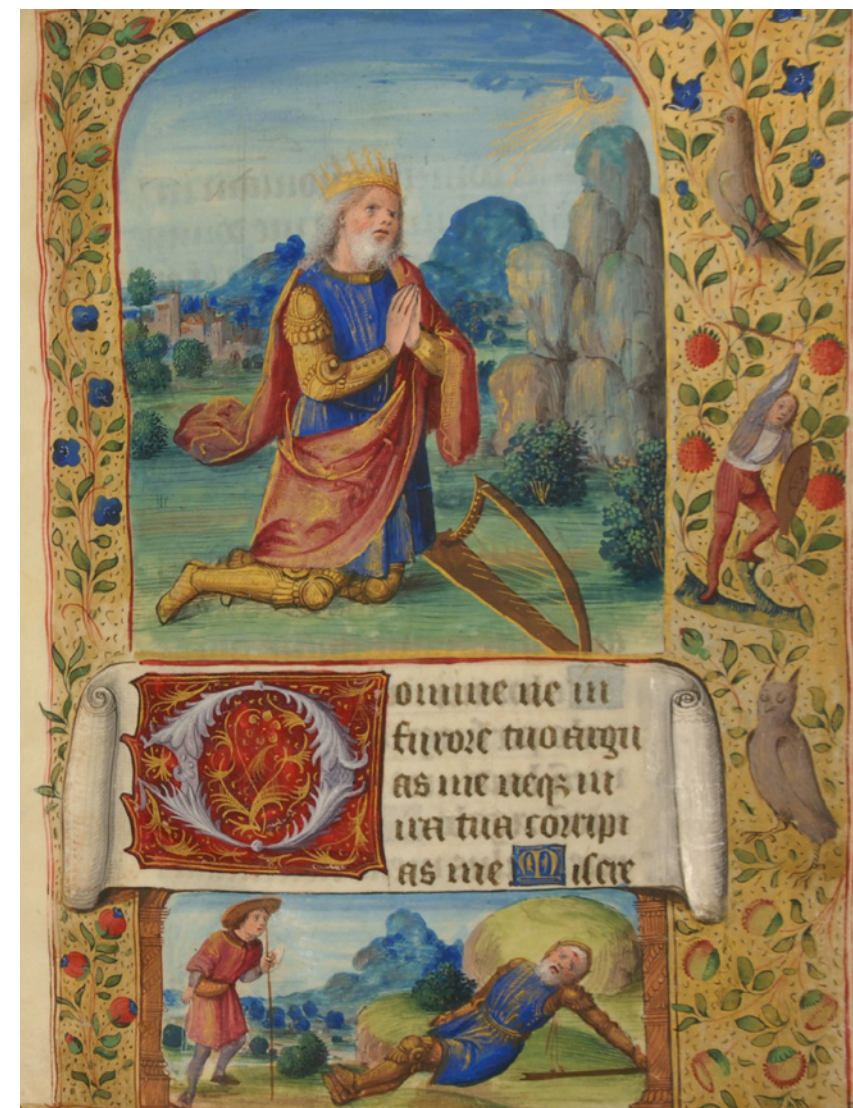 Domine ne in
furore tuo argu
as me neqꝫ in
ira tua corripi
as me Misere